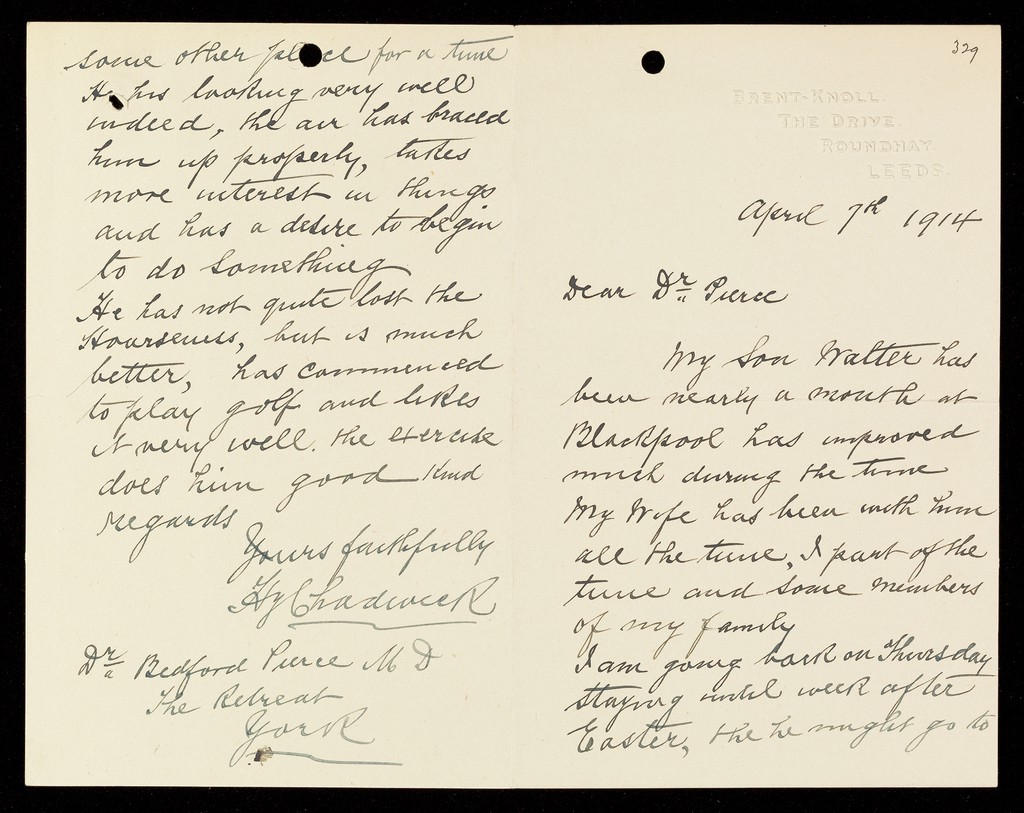 329
BRENT-KNOLL.
THE DRIVE.
ROUNDHAY.
LEEDS.
April 7th 1914
Dear Dr Pierce
My Son Walter has
been nearly a month at
Blackpool has improved
much during the time
My Wife has been with him
all the time, I part of the
time and some members
of my family
I am going back on Thursday
staying until week after
Easter, the he might go to
some other place for a time
He his looking very well
indeed, the air has braced
him up properly, takes
more interest in things
and has a desire to begin
to do something
He has not quite lost the
Hoarseness, but is much
better, has commenced
to play golf and likes
it very well. the exercise
does him good Kind
regards
Yours faithfully
Hy Chadwick
Dr Bedford Pierce M D
The Retreat
York